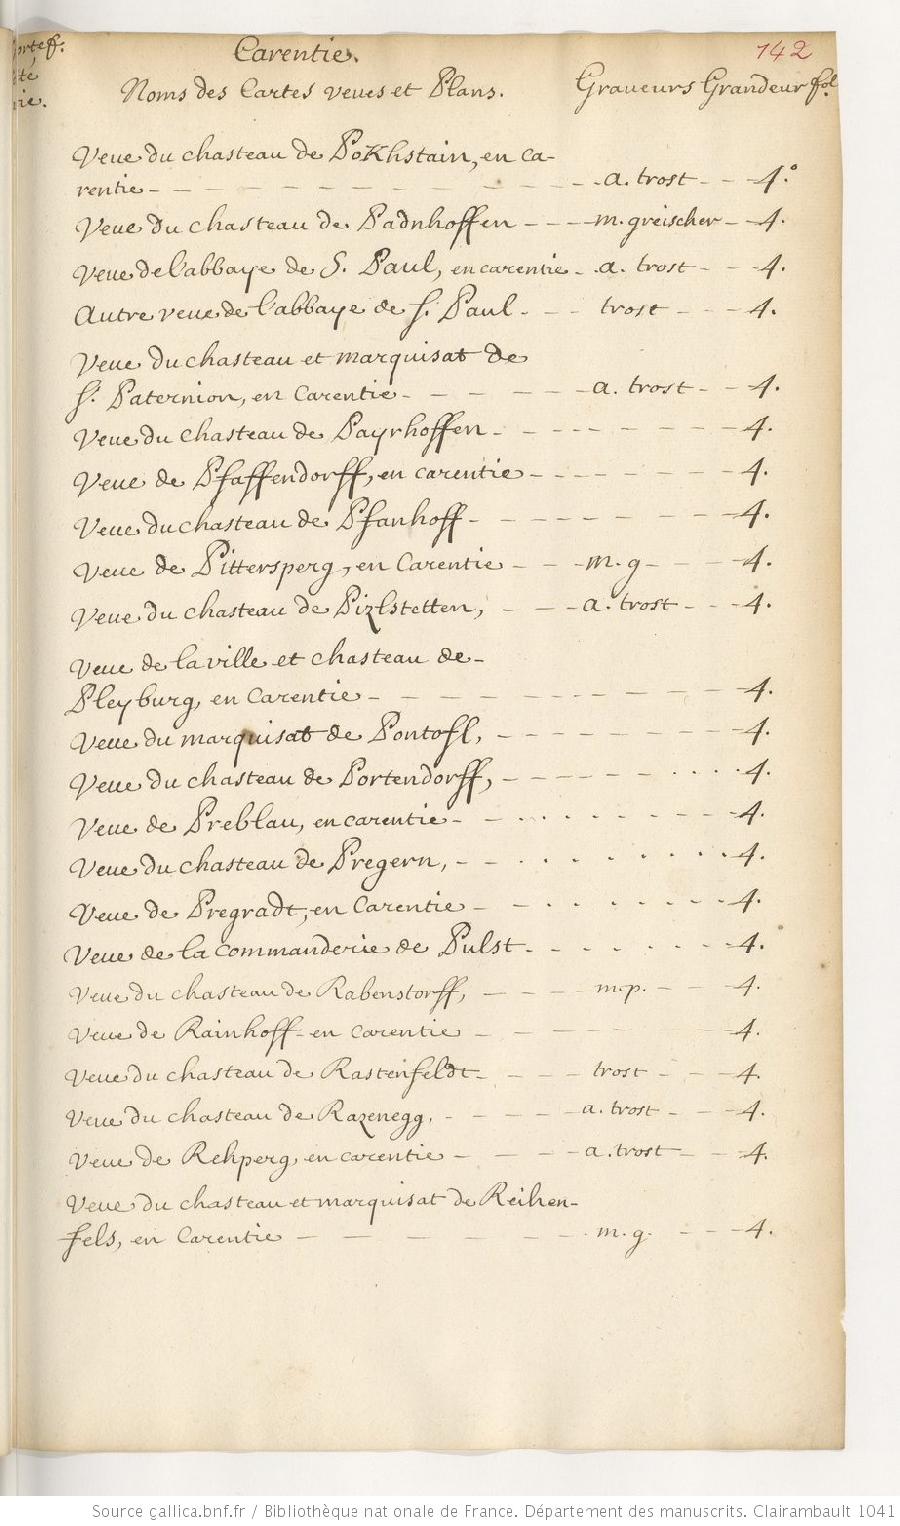 Carentie. 142
Noms des Cartes veues et Plans. Graveurs Grandeur fol.
Veue du chasteau de Pokhstain, en ca-
rentie - - - - - - - - - a. trost - - 4.°
Veue du chasteau de Padnhoffen - - - m. greischer - 4.
Veue de l'abbaye de S. Paul, en carentie - a. trost - - 4.
Autre veue de l'abbaye de S. Paul - - - trost - - - 4.
Veue du chasteau et marquisat de
S. Paternion, en Carentie - - - - - - a. trost - - 4.
Veue du chasteau de Payrhoffen - - - - - - - 4.
Veue de Pfaffendorff, en carentie - - - - - - - 4.
Veue du chasteau de Pfanhoff - - - - - - - - 4.
Veue de Pittersperg, en Carentie - - - m. g - - - 4.
Veue du chasteau de Pizlstetten, - - - a. trost - - - 4.
Veue de la ville et chasteau de -
Pleyburg, en Carentie - - - - - - - - - - 4.
Veue du marquisat de Pontafl, - - - - - - - - 4.
Veue du chasteau de Portendorff, - - - - - . . . . 4.
Veue de Preblau, en carentie - - . . . . - - - - 4.
Veue du chasteau de Pregern, - - . . . . . . . . 4.
Veue de Pregradt, en Carentie - - . . . . . - - 4.
Veue de la commanderie de Pulst - . . . . . - - 4.
Veue du chasteau de Rabenstorff, - - - - m.p. - - - 4.
Veue de Rainhoff - en carentie - - - - - 4.
Veue du chasteau de Rastenfeldt - - - - trost - - - 4.
Veue du chasteau de Razenegg, - - - - - a. trost - - - 4.
Veue de Rehperg, en carentie - - - - a. trost - - - 4.
Veue du chasteau et marquisat de Reihen-
fels, en Carentie - - - - - - - m. g. - - - 4.
Source gallica.bnf.fr / Bibliothèque nationale de France. Département des manuscrits. Clairambault 1041